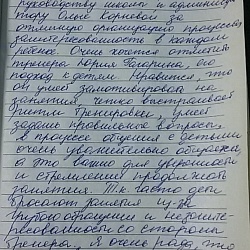 руководству школы и администра
тору Ольге Корневой за
отличную организацию процесса,
заинтересованность в каждом
ребенке. Очень хочется отметить
тренера Юрия Гагарина, его
подход к детям. Нравится, что
он умеет замотивировать на
занятия, четко выстраивает
ритм тренировки, умеет
задать правильные вопросы,
в процессе общения с детьми
очень уважительно общается,
а это важно для уверенности
и стремления продолжать
занятия. Т.к. часто дети
бросают занятия из-за
грубого обращения и незаинте-
ресованности со стороны
тренера, я очень рада, что